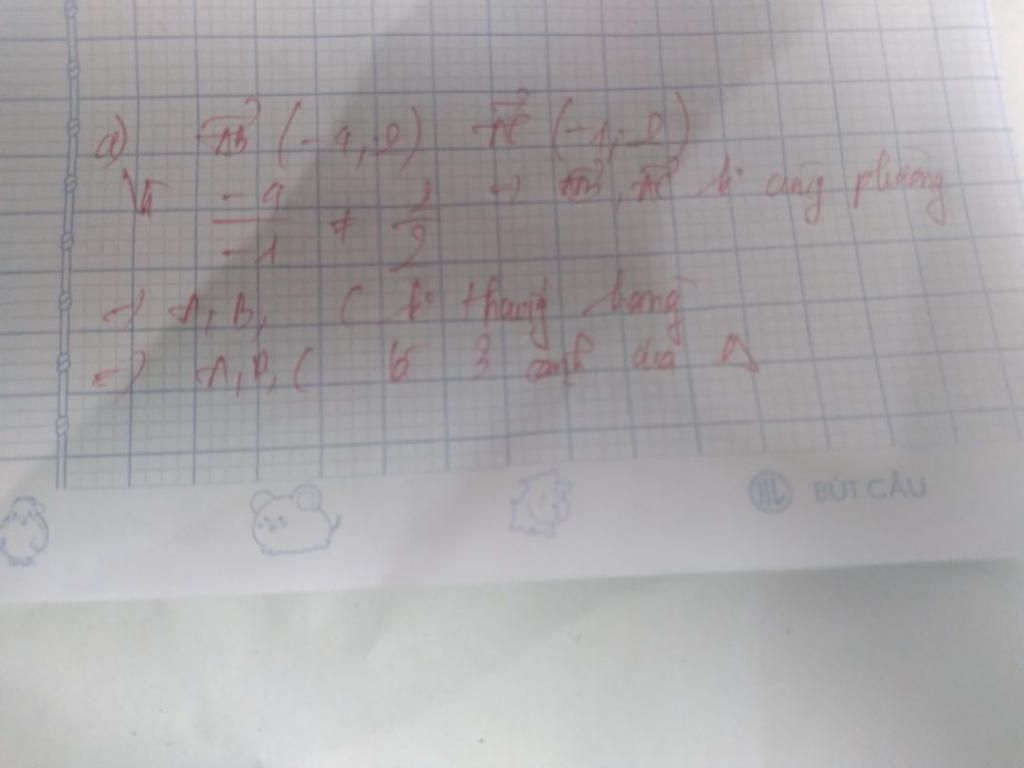 a) AB (-4; 2) AC (-1; 2)
Vì -4/-1 ≠ 2/2 → AB, AC k° cùng phương
→ A, B, C k° thẳng hàng
→ A, B, C là 3 của Δ
BÚT CÂU